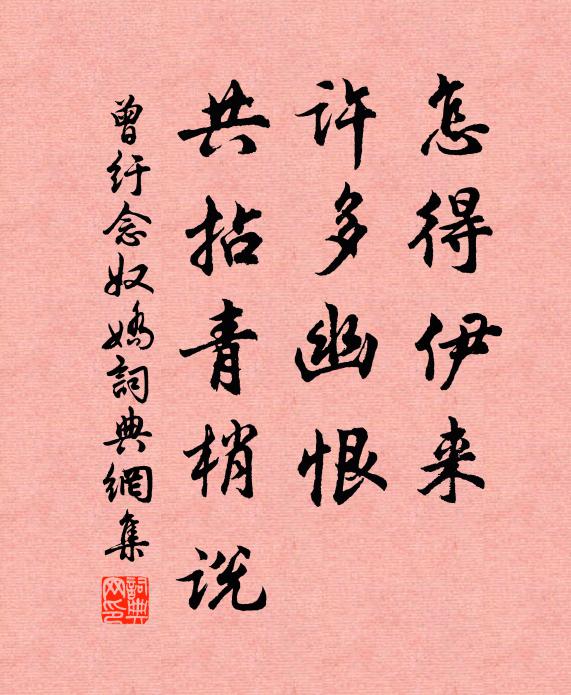 怎得伊来
许多幽恨
共拈青梢说
曾纡念奴娇詞典網集
詞典网印